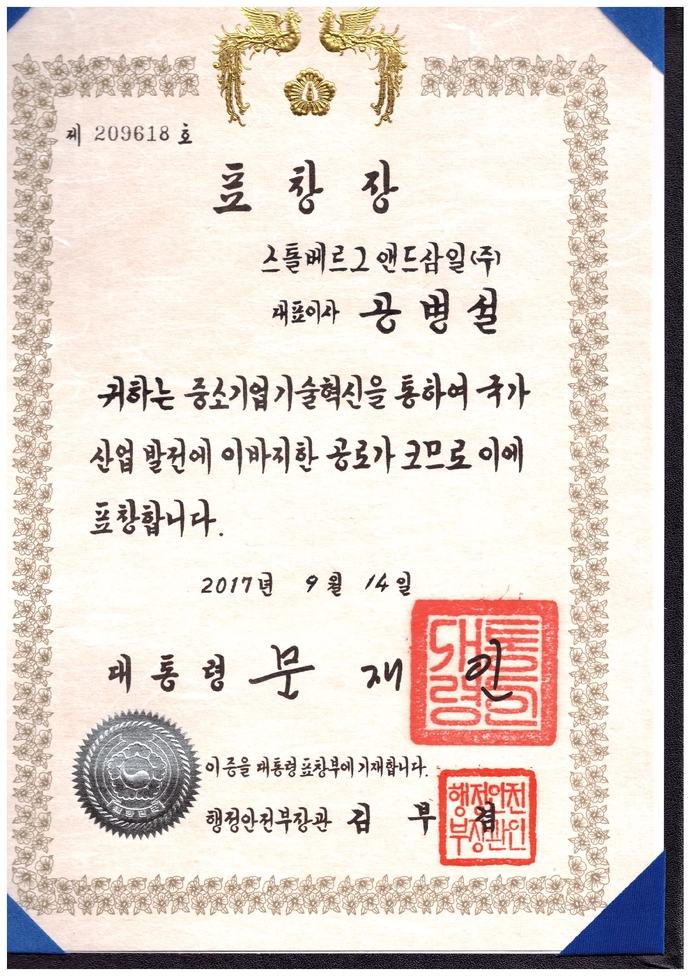 제 209618 호
표창장
스톨베르그앤드삼일(주)
대표이사 공병설
귀하는 중소기업기술혁신을 통하여 국가
산업 발전에 이바지한 공로가 크므로 이에
표창합니다.
2017년 9월 14일
대통령 문재인
대통령의인
이 증을 대통령표창부에 기재합니다.
행정안전부장관 김부겸
행정안전
부장관인